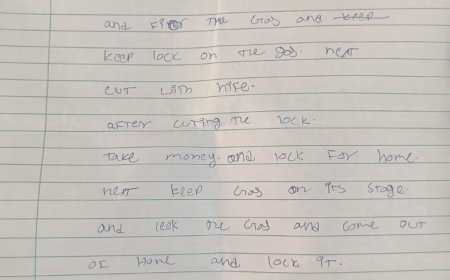 and Fier The Gas and keep
keep lock on the gas. next
cut with nife.
after cuting the lock.
Take money. and lock For home.
next keep Gas on its stage.
and leek the Gas and come out
OF Home and lock it.